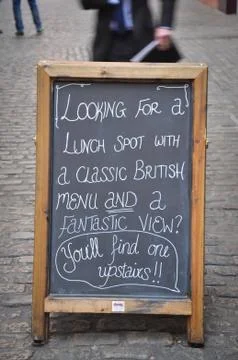 LOOKING FOR a
LUNCH SPOT WITH
a CLASSIC BRITISH
MENU AND a
FANTASTIC VIEW?
You'll find one
upstairs!!